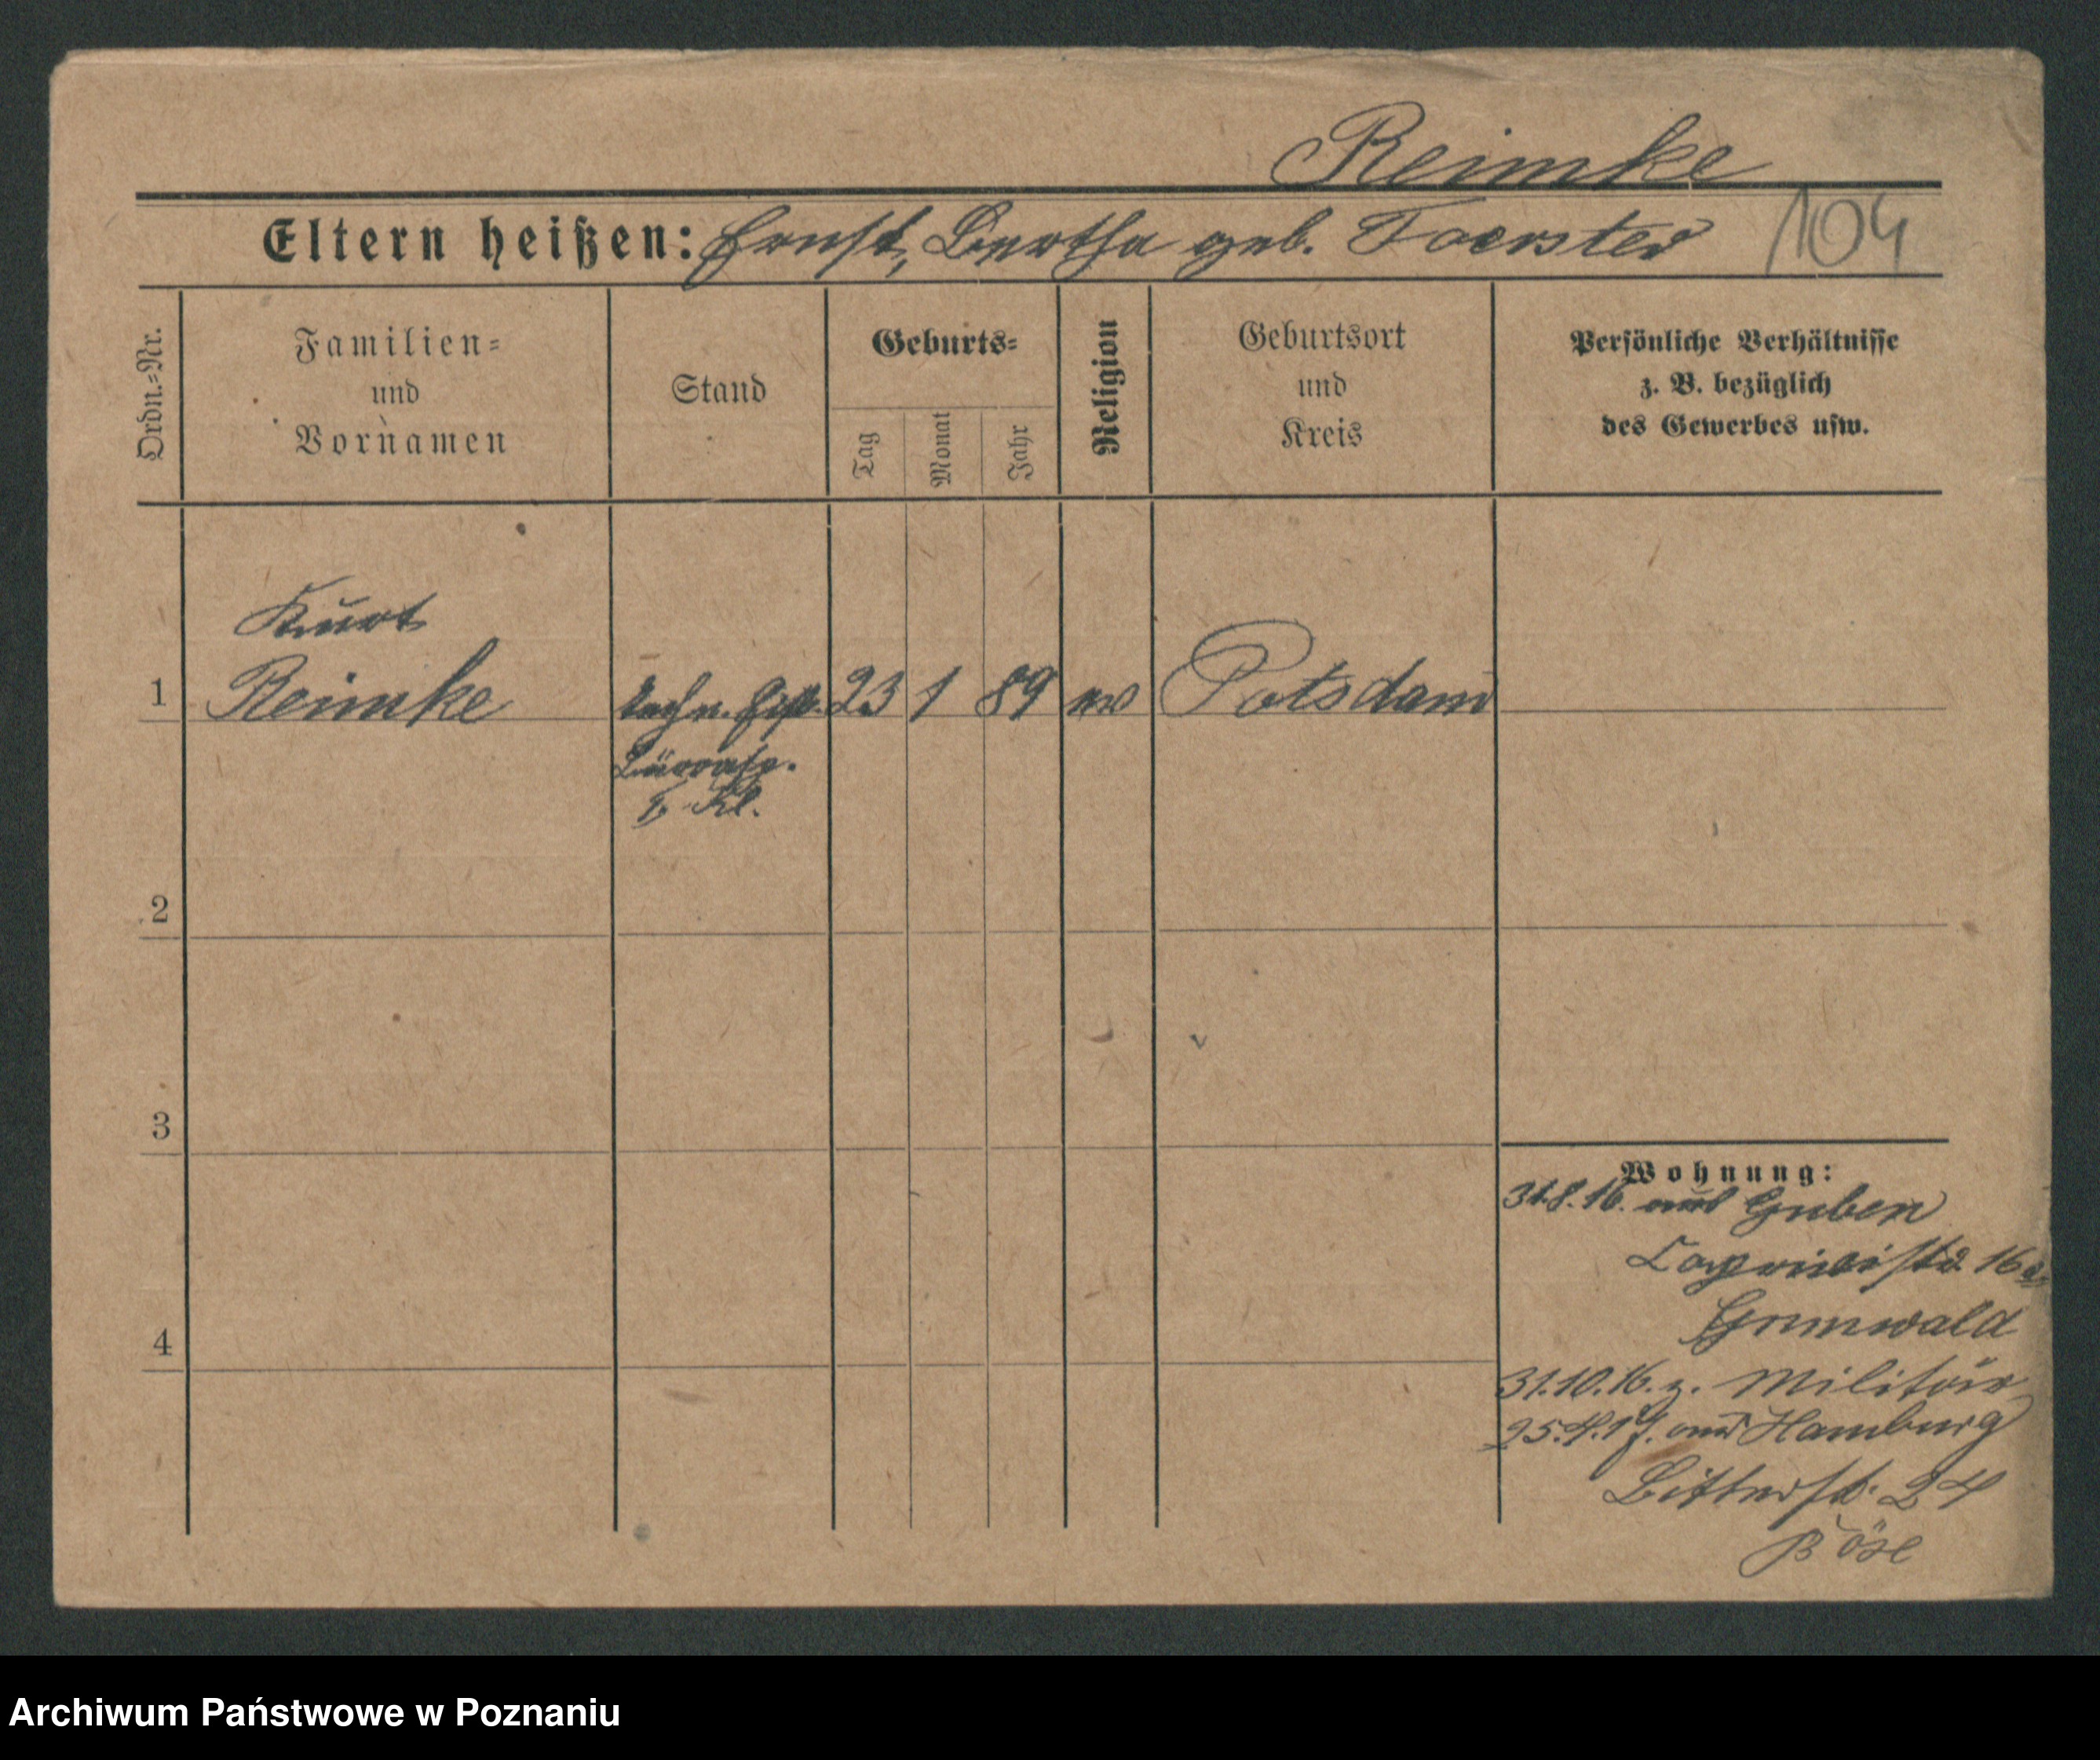 Reimke
Eltern heißen: Ernst, Bertha geb. Foerster 104
Ordn.=Nr.
Familien=
und
Vornamen
Stand
Geburts=
Tag
Monat
Jahr
Religion
Geburtsort
und
Kreis
Persönliche Verhältnisse
z. B. bezüglich
des Gewerbes usw.
Kurt
1 Reimke techn. 23 1 89 ev Potsdam
1. Kl.
2
3
4
Wohnung:
31.8.16. aus Guben
Caprivistr. 16
Grunwald
31.10.16. z. Militär
25.4.17. aus Hamburg
Ritterstr. 24
Böse
Archiwum Państwowe w Poznaniu